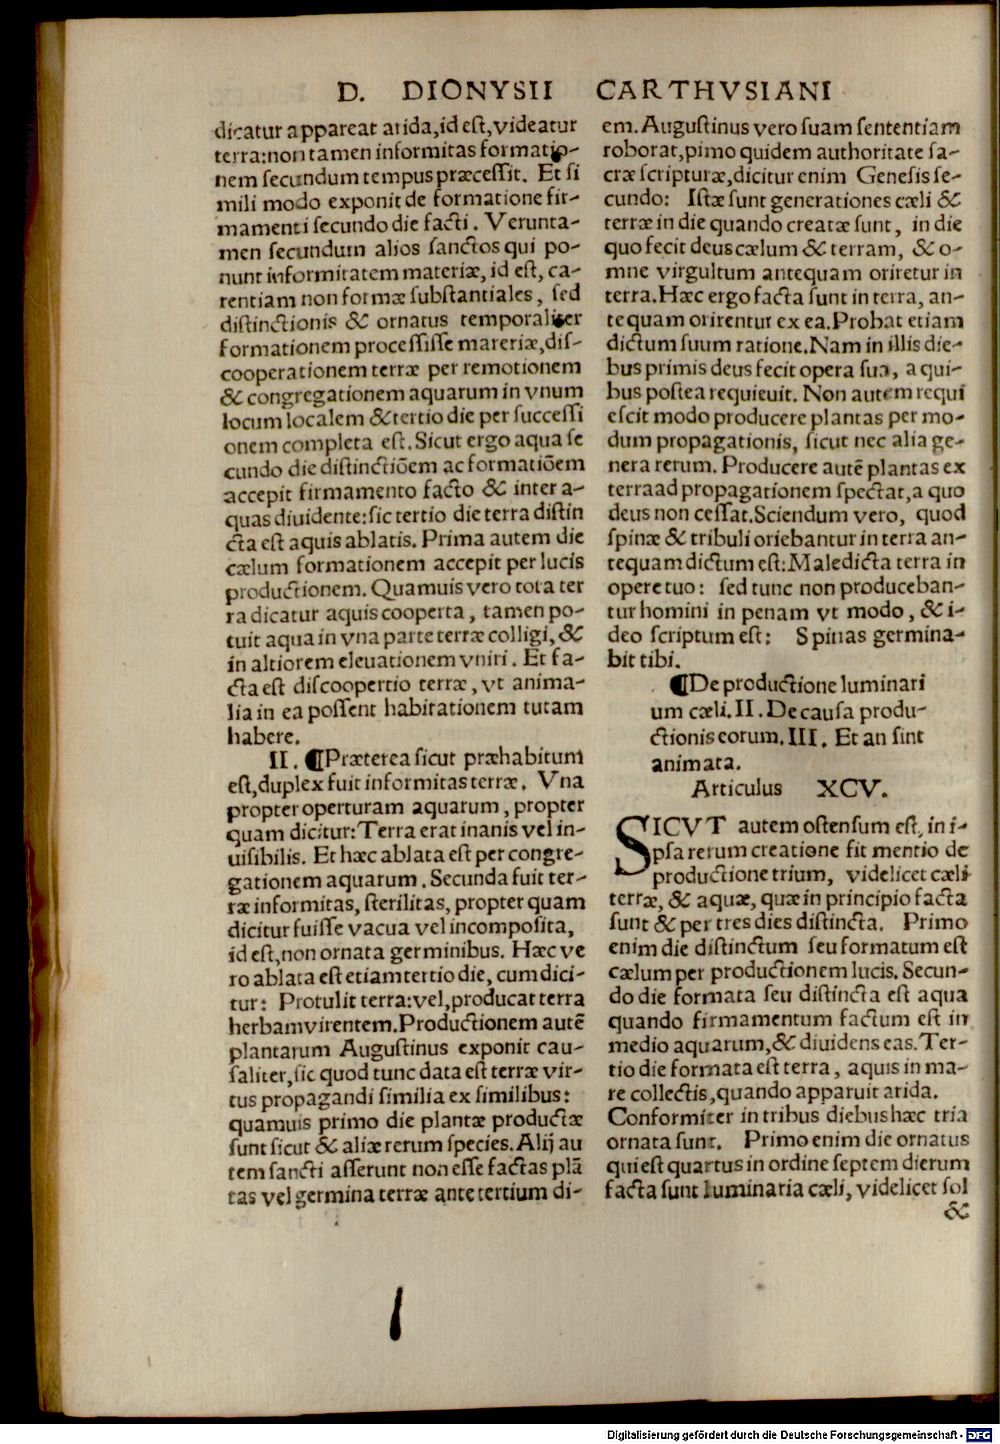 D. DIONYSII CARTHVSIANI
dicatur appareat arida,id est,videatur
terra:non tamen informitas formatio-
nem secundum tempus præcessit. Et si
mili modo exponit de formatione fir-
mamenti secundo die facti. Verunta-
men secundum alios sanctos qui po-
nunt informitatem materiæ, id est, ca-
rentiam non formæ substantiales, sed
distinctionis & ornatus temporaliter
formationem processisse mareriæ,dis-
cooperationem terræ per remotionem
& congregationem aquarum in vnum
locum localem & tertio die per successi
onem completa est. Sicut ergo aqua se
cundo die distinctiõem ac formatiõem
accepit firmamento facto & inter a-
quas diuidente:sic tertio die terra distin
cta est aquis ablatis. Prima autem die
cælum formationem accepit per lucis
productionem. Quamuis vero tota ter
ra dicatur aquis cooperta, tamen po-
tuit aqua in vna parte terræ colligi, &
in altiorem eleuationem vniri. Et fa-
cta est discoopertio terræ, vt anima-
lia in ea possent habitationem tutam
habere.
II. ¶Præterea sicut præhabitum
est,duplex fuit informitas terræ. Vna
propter operturam aquarum, propter
quam dicitur: Terra erat inanis vel in-
uisibilis. Et hæc ablata est per congre-
gationem aquarum. Secunda fuit ter-
ræ informitas, sterilitas, propter quam
dicitur fuisse vacua vel incomposita,
id est,non ornata germinibus. Hæc ve
ro ablata est etiam tertio die, cum dici-
tur: Protulit terra:vel,producat terra
herbam virentem. Productionem autẽ
plantarum Augustinus exponit cau-
saliter,sic quod tunc data est terræ vir-
tus propagandi similia ex similibus:
quamuis primo die plantæ productæ
sunt sicut & aliæ rerum species. Alij au
tem sancti asserunt non esse factas plã
tas vel germina terræ ante tertium di-
em. Augustinus vero suam sententiam
roborat,pimo quidem authoritate sa-
cræ scripturæ,dicitur enim Genesis se-
cundo: Istæ sunt generationes cæli &
terræ in die quando creatæ sunt, in die
quo fecit deus cælum & terram, & o-
mne virgultum antequam oriretur in
terra. Hæc ergo facta sunt in terra, an-
tequam orirentur ex ea. Probat etiam
dictum suum ratione. Nam in illis die-
bus primis deus fecit opera sua, a qui-
bus postea requieuit. Non autem requi
escit modo producere plantas per mo-
dum propagationis, sicut nec alia ge-
nera rerum. Producere autẽ plantas ex
terra ad propagationem spectat,a quo
deus non cessat. Sciendum vero, quod
spinæ & tribuli oriebantur in terra an-
tequam dictum est: Maledicta terra in
opere tuo: sed tunc non produceban-
tur homini in penam vt modo, & i-
deo scriptum est: Spinas germina-
bit tibi.
¶De productione luminari
um cæli. II. De causa produ-
ctionis eorum. III. Et an sint
animata.
Articulus XCV.
SICVT autem ostensum est, in i-
psa rerum creatione fit mentio de
productione trium, videlicet cæli
terræ, & aquæ, quæ in principio facta
sunt & per tres dies distincta. Primo
enim die distinctum seu formatum est
cælum per productionem lucis. Secun-
do die formata seu distincta est aqua
quando firmamentum factum est in
medio aquarum,& diuidens eas. Ter-
tio die formata est terra, aquis in ma-
re collectis,quando apparuit arida.
Conformiter in tribus diebus hæc tria
ornata sunt. Primo enim die ornatus
qui est quartus in ordine septem dierum
facta sunt luminaria cæli, videlicet sol
&
Digitalisierung gefördert durch die Deutsche Forschungsgemeinschaft - DFG